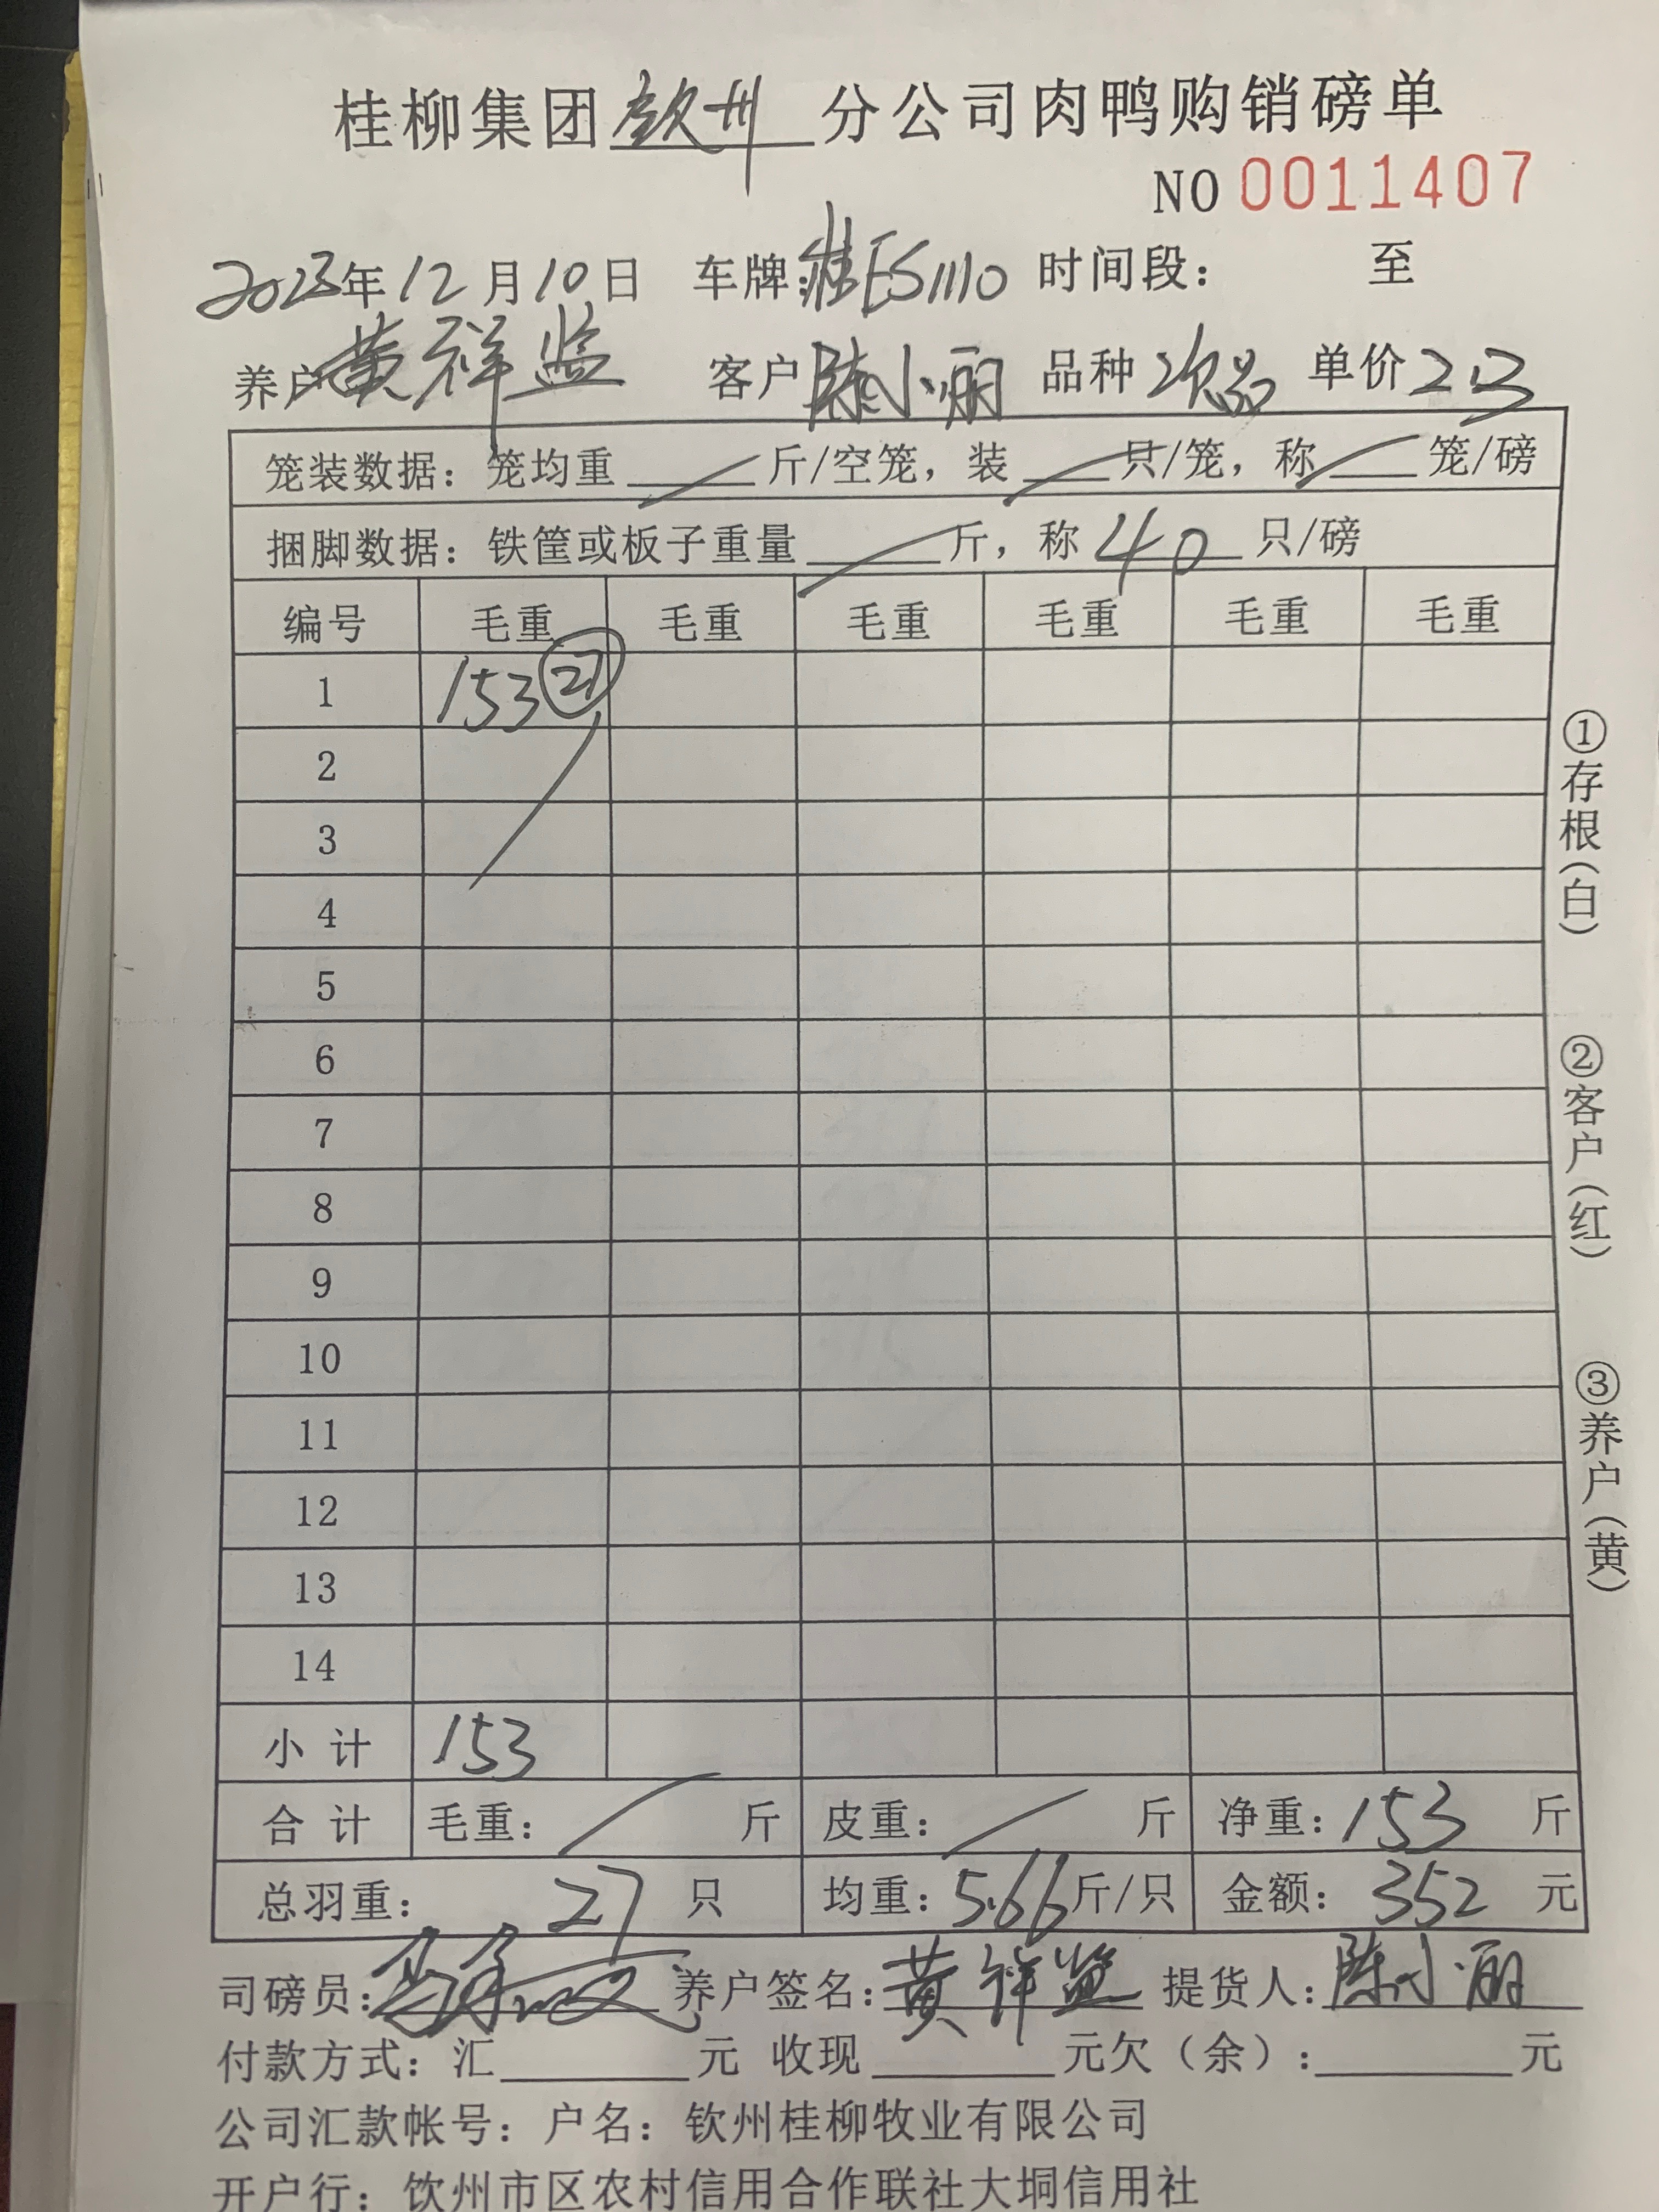 桂柳集团钦州分公司肉鸭购销磅单
NO 0011407
2023年12月10日 车牌:桂ES1110 时间段: 至
养户黄祥益 客户陈小丽 品种 次品 单价 2.3
笼装数据:笼均重____斤/空笼,装____只/笼,称____笼/磅
捆脚数据:铁筐或板子重量____斤,称 40 只/磅
编号 毛重 毛重 毛重 毛重 毛重 毛重
1 153 27
2
3
4
5
6
7
8
9
10
11
12
13
14
小计 153
合计 毛重: 斤 皮重: 斤 净重: 153 斤
总羽重: 27 只 均重: 5.66 斤/只 金额: 352 元
司磅员: 养户签名: 黄祥益 提货人: 陈小丽
付款方式:汇____元 收现____元欠(余):____元
公司汇款帐号:户名:钦州桂柳牧业有限公司
开户行:钦州市区农村信用合作联社大垌信用社
①存根(白)
②客户(红)
③养户(黄)